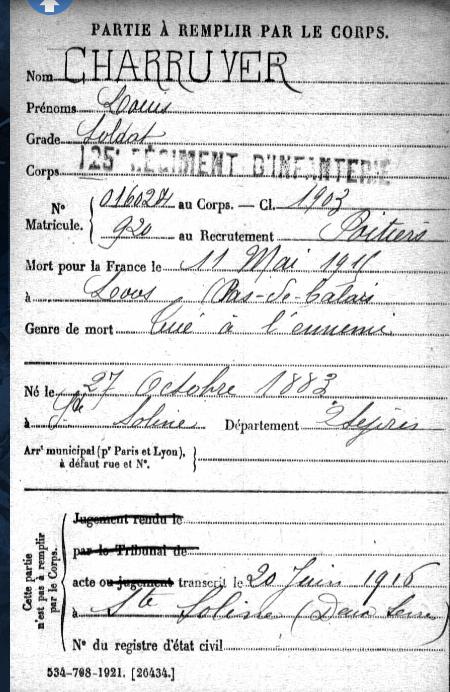 PARTIE À REMPLIR PAR LE CORPS.
Nom CHARRUYER
Prénoms Louis
Grade Soldat
Corps 125e RÉGIMENT D'INFANTERIE
N° Matricule. { 016024 au Corps. — Cl. 1903
920 au Recrutement Poitiers
Mort pour la France le 11 Mai 1915
à Loos (Pas-de-Calais
Genre de mort Tué à l'ennemi
Né le 27 Octobre 1883
à Ste Soline Département 2 Sèvres
Arrt municipal (pr Paris et Lyon), à défaut rue et N°. }
Cette partie n'est pas à remplir par le Corps.
Jugement rendu le
par le Tribunal de
acte ou jugement transcrit le 20 Juin 1916
à Ste Soline (Deux Sèvres)
N° du registre d'état civil
534-708-1921. [26434.]